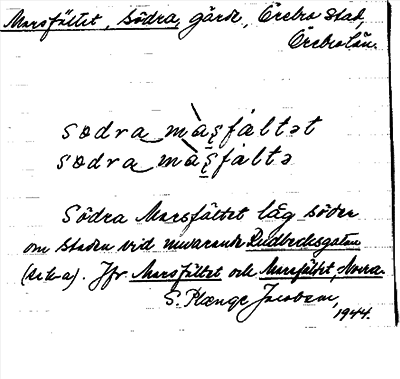 Marsfältet, Södra, gärde, Örebro stad,
Örebro län.
södra måsfältet
södra måsfälte
Södra Marsfältet låg söder
om staden vid nuvarande Rudbecksgatan
Jfr Marsfältet och Marsfältet, Norra.
S. Plænge Jacobson,
1944.